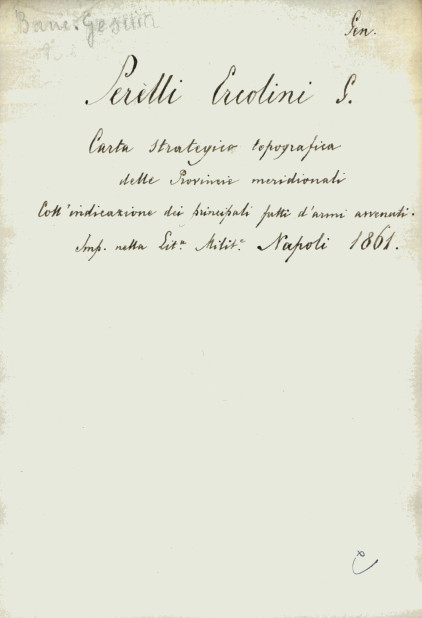 Gen.
Perelli Ercolini G.
Carta strategico topografica
delle Provincie meridionali
Coll'indicazione dei principali fatti d'armi avvenuti.
Imp. nella Lit.ª Milit.e Napoli 1861.